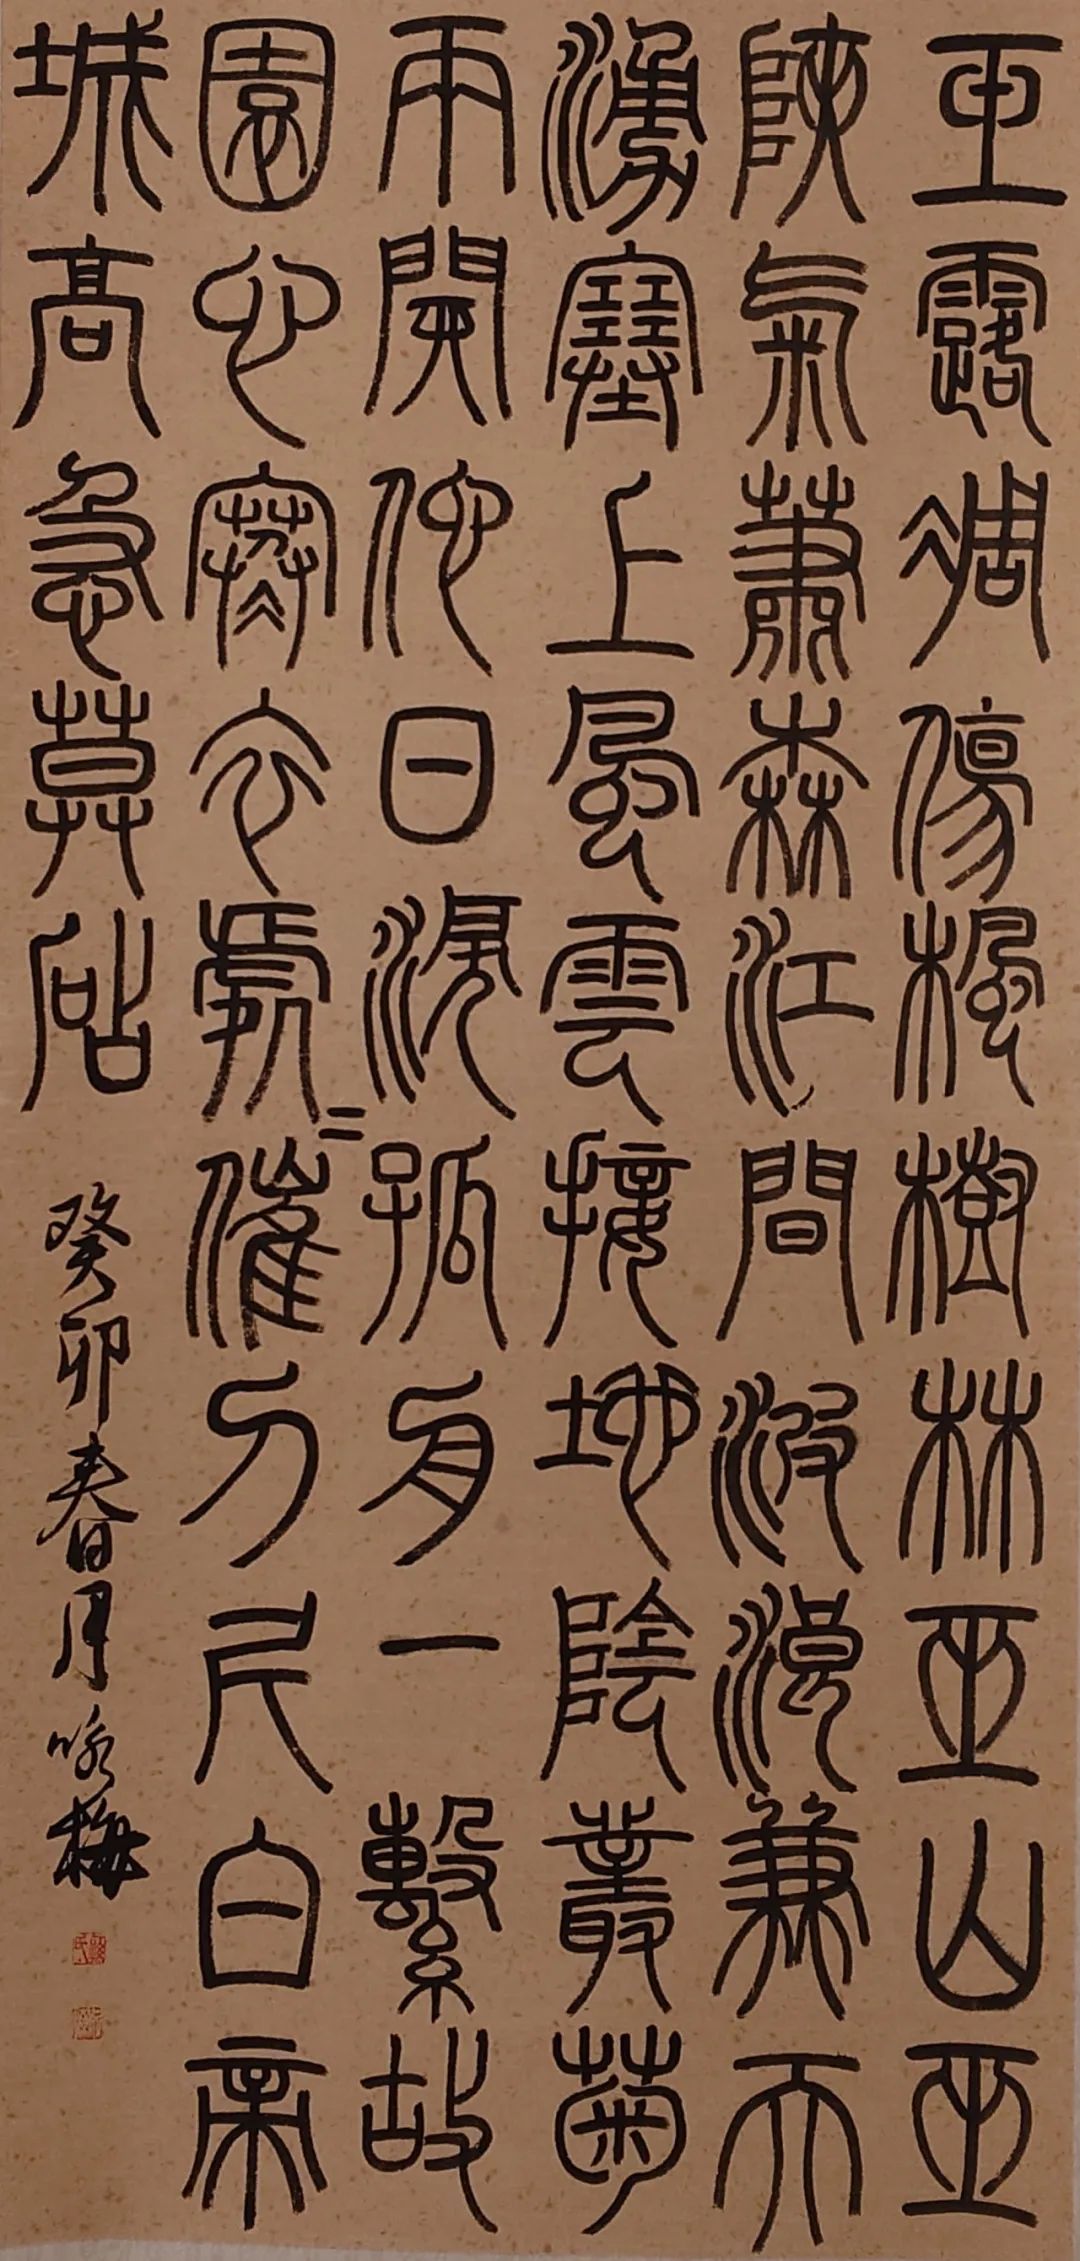 玉露凋傷楓樹林巫山巫
陜氣蕭森江間波浪兼天
湧塞上風雲接地陰叢菊
兩開他日淚孤舟一繫故
園心寒衣處〻催刀尺白帝
城高急莫砧
癸卯春月咏梅